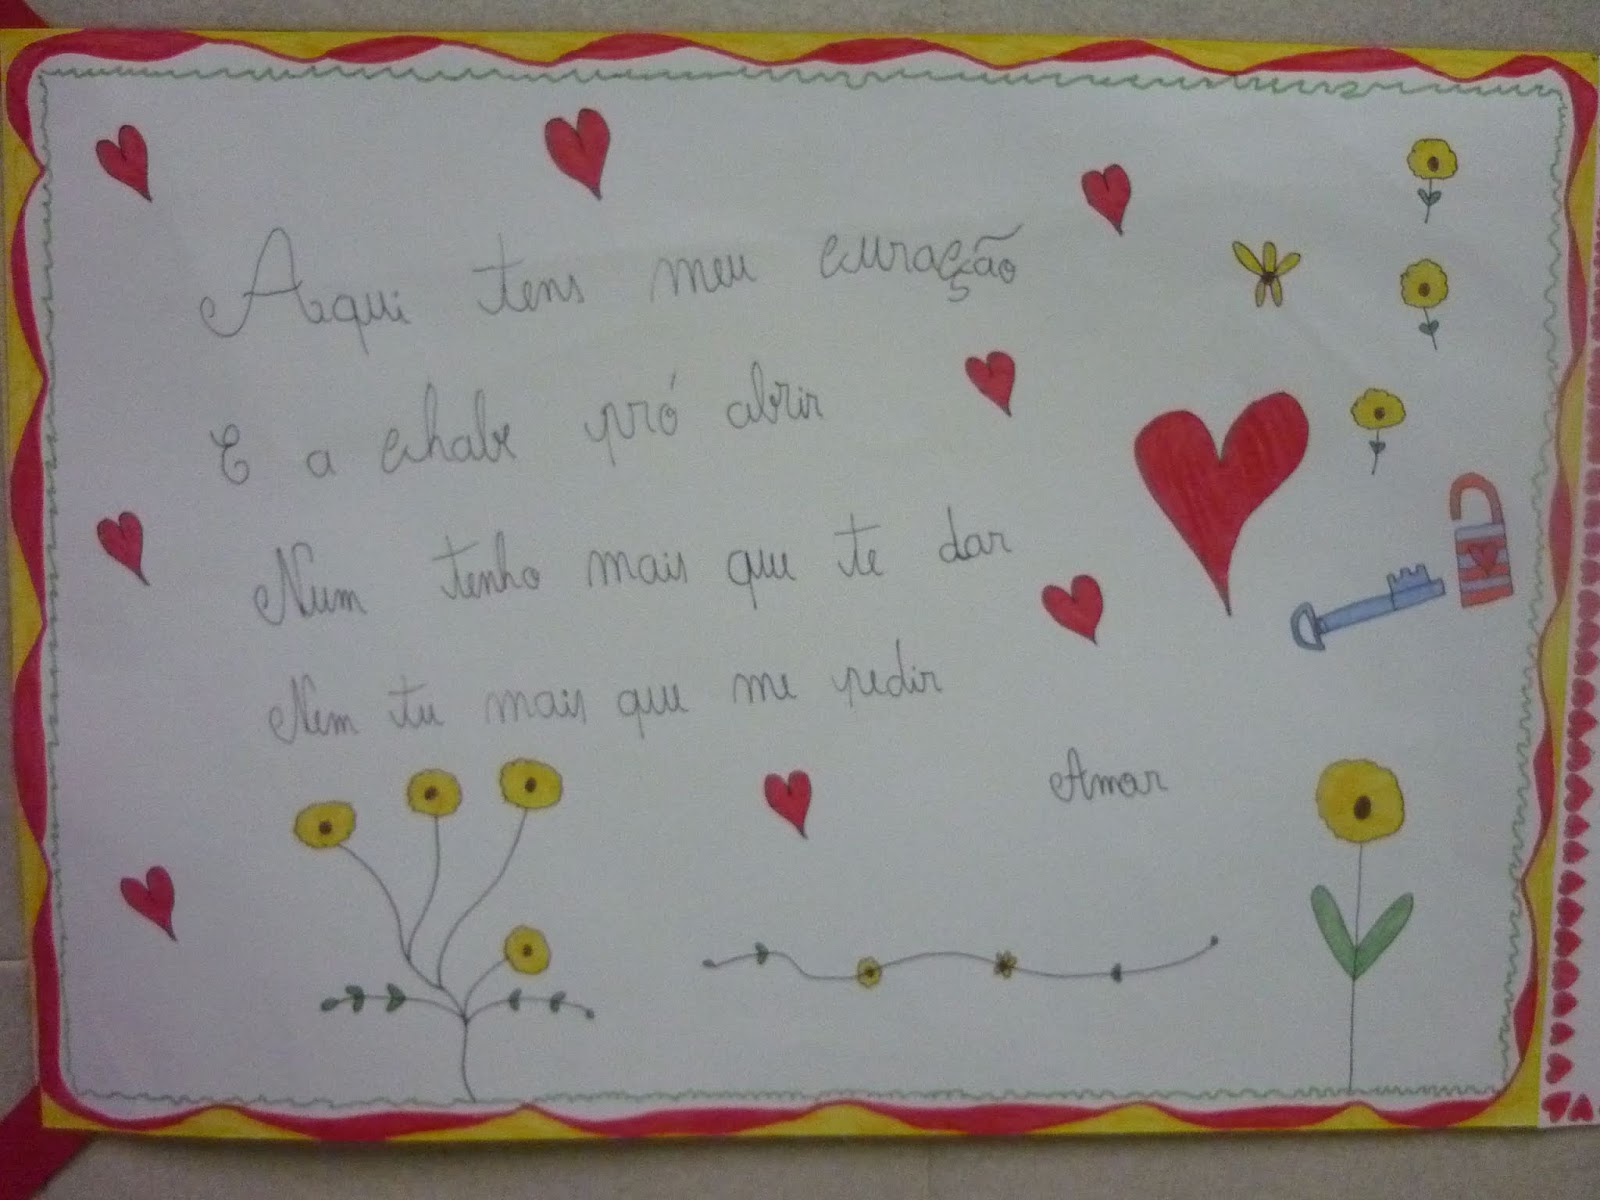 Aqui tens meu curação
E a chabe pró abrir
Num tenho mais que te dar
Nem tu mais que me pedir
Amar